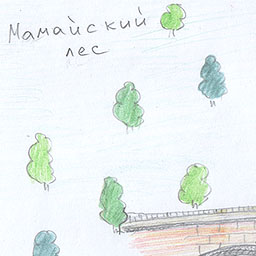 Мамайский
лес